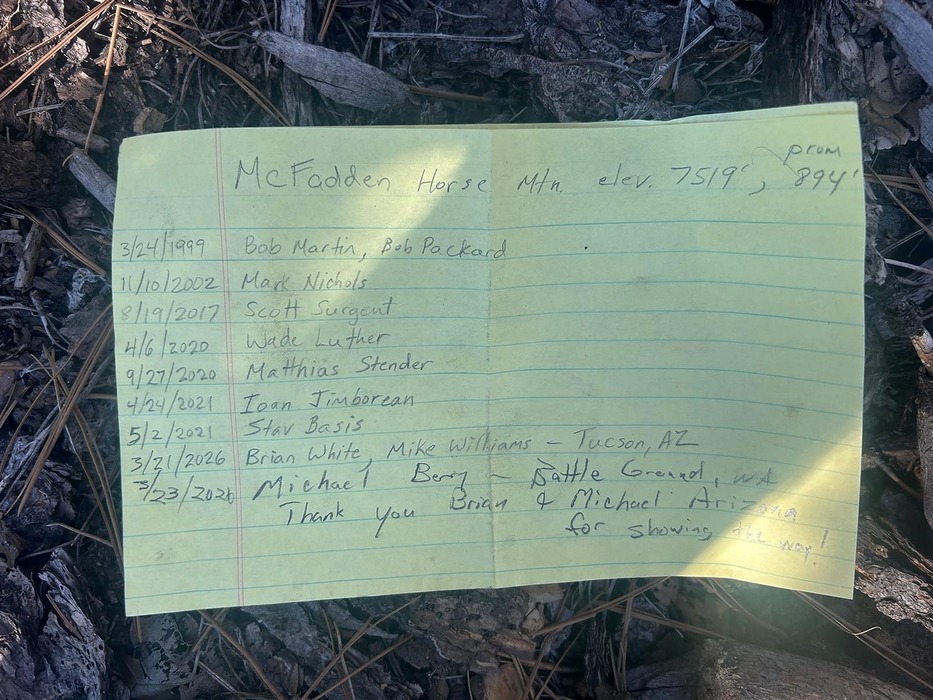 prom
McFadden Horse Mtn. elev. 7519', 894'
3/24/1999 Bob Martin, Bob Packard
11/10/2002 Mark Nichols
8/19/2017 Scott Surgent
4/6/2020 Wade Luther
9/27/2020 Matthias Stender
4/24/2021 Ioan Jimborean
5/2/2021 Stav Basis
3/21/2026 Brian White, Mike Williams - Tucson, AZ
3/23/2026 Michael Berry - Battle Ground, WA
Thank you Brian & Michael Arizona
for showing the way!